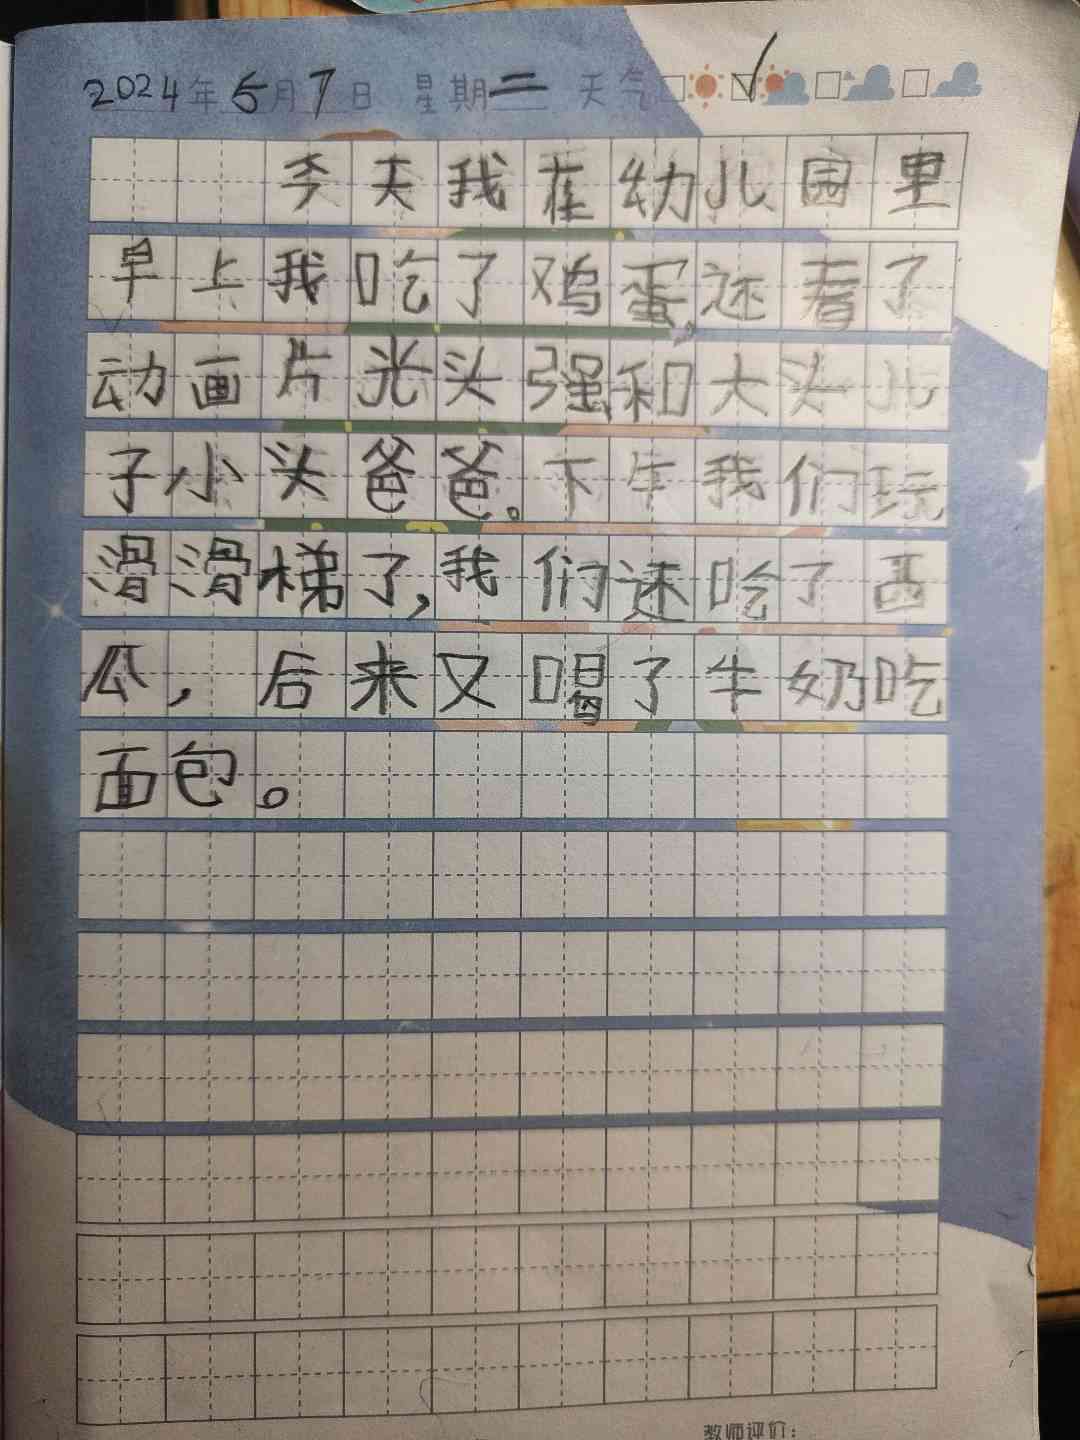 2024年5月7日 星期二 天气
今天我在幼儿园里
早上我吃了鸡蛋,还看了
动画片光头强和大头儿
子小头爸爸。下午我们玩
滑滑梯了,我们还吃了西
瓜,后来又喝了牛奶吃
面包。
教师评价: